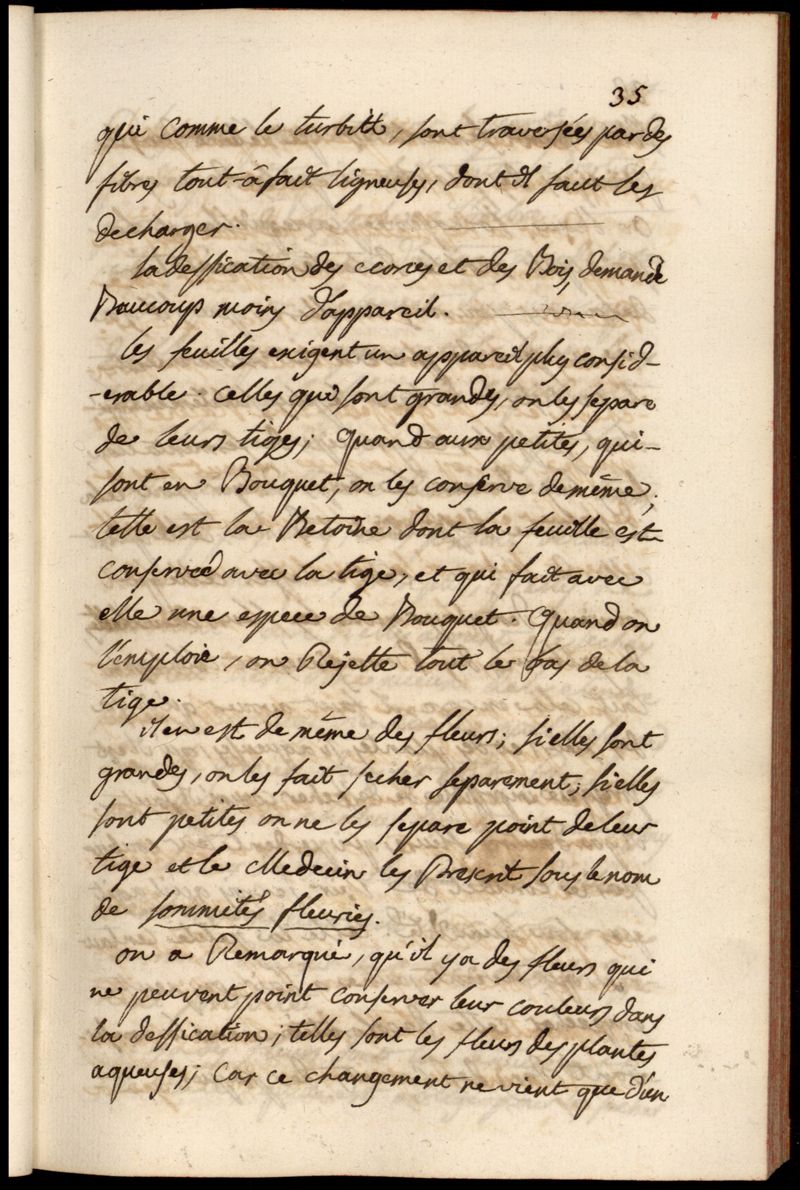 35
qui comme le turbith, sont traversées par des
fibres tout-à fait ligneuses, dont il faut les
decharger.
la dessication des ecorces et des Bois, demande
Beaucoup moins d'appareil.
les feuilles exigent un appareil plus consid-
-erable. celles qui sont grandes, on les separe
de leurs tiges; quand aux petites, qui-
sont en Bouquet, on les conserve de même,
telle est la Betoine dont la feuille est
conservée avec la tige, et qui fait avec
elle une espece de Bouquet. Quand on
l'emploie, on Rejette tout le bas de la
tige.
il en est de même des fleurs; si elles sont
grandes, on les fait secher separement, si elles
sont petites on ne les separe point de leur
tige et le Medecin les Prescrit sous le nom
de sommités fleuries.
on a Remarqué, qu'il y a des fleurs qui
ne peuvent point conserver leur couleurs dans
la dessication; telles sont les fleurs des plantes
aqueuses; car ce changement ne vient que d'en